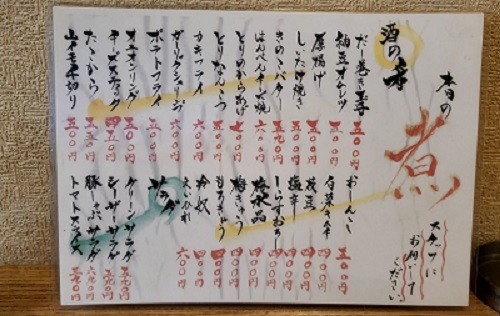 本日の
煮
スタッフに
お聞きして
ください
酒の肴
だし巻き玉子 五〇〇円
釉豆オチンツ 五〇〇円
厚揚げ 五〇〇円
しいたけ焼き 五〇〇円
きのこバター 五五〇円
はんぺんチーズ焼 六〇〇円
とりのからあげ 七〇〇円
とりなんこつ 六〇〇円
カキフライ 六〇〇円
ガーリックシュリンプ 六〇〇円
ポテトフライ 五〇〇円
オニオンリング 五〇〇円
チーズスティック 四五〇円
たこから 五五〇円
山イモ千切り 五〇〇円
おしんこ 五〇〇円
枝豆 四〇〇円
塩辛 四〇〇円
しらすおろし 四〇〇円
梅水晶 四〇〇円
梅きゅう 四〇〇円
もろきゅう 四〇〇円
冷奴 四〇〇円
えいひれ 六〇〇円
サラダ
グリーンサラダ 五五〇円
シーザーサラダ 五五〇円
豚しゃぶサラダ 六五〇円
トマトスライス 五五〇円